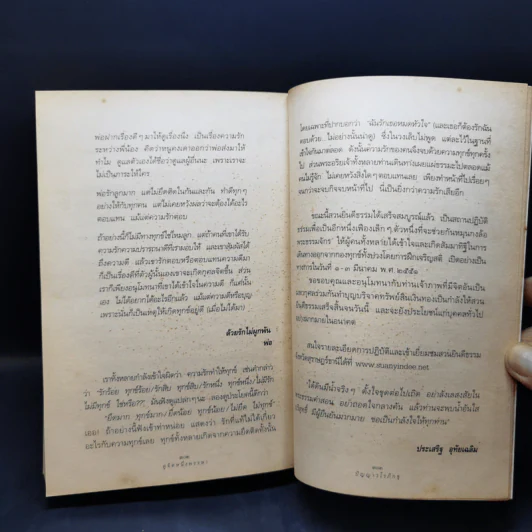 พ่อฝากเรื่องดีๆ มาให้ดูเรื่องนึง เป็นเรื่องความรัก
ระหว่างพี่น้อง คิดว่าหนูคงเดาออกว่าพ่อส่งมาให้
ทำไม ดูแลตัวเองได้ชื่อว่าดูแลผู้อื่นนะ เพราะเราจะ
ไม่เป็นภาระให้ใคร
พ่อรักลูกมาก แต่ไม่ยึดติดในกันและกัน ทำดีทุกๆ
อย่างให้กับทุกคน แต่ไม่เคยหวังผลว่าจะต้องได้อะไร
ตอบแทน แม้แต่ความรักตอบ
ถ้าอย่างนี้ก็ไม่มีทางทุกข์ใช่ไหมลูก แต่ถ้าคนที่เขาได้รับ
ความรักความปรารถนาดีที่เรามอบให้ และเขาสัมผัสได้
ถึงความดี แล้วเขารักตอบหรือตอบแทนความดีมา
ก็เป็นเรื่องดีที่ตัวผู้นั้นเองเขาจะเกิดกุศลจิตขึ้น ส่วน
เราก็เพียงอนุโมทนาที่เขาได้เข้าใจในความดี ก็แค่นั้น
เอง ไม่ได้อยากได้อะไรอีกแล้ว แม้แต่ความดีหรือบุญ
เพราะนั่นก็เป็นเหตุให้เกิดทุกข์อยู่ดี (เมื่อไม่ได้มา)
ด้วยรักไม่ผูกพัน
พ่อ
เราทั้งหลายกำลังเข้าใจผิดว่า ความรักทำให้ทุกข์ เช่นคำกล่าว
ว่า "รักร้อย ทุกข์ร้อย/รักสิบ ทุกข์สิบ/รักหนึ่ง ทุกข์หนึ่ง/ไม่มีรัก
ไม่มีทุกข์
"ยึดมาก ทุกข์มาก/ยึดน้อย ทุกข์น้อย/ไม่ยึด ไม่ทุกข์"
เลย! ถ้าอย่างนี้ฟังเข้าท่าหน่อย แสดงว่า รักที่แท้ไม่ได้เกี่ยว
อะไรกับความทุกข์เลย ทุกข์ทั้งหลายเกิดจากความยึดติดทั้งนั้น
โดยเฉพาะที่ปากบอกว่า "ฉันรักเธอหมดหัวใจ" (และเธอก็ต้องรักฉัน
ตอบด้วย ไม่อย่างนั้นน่าดู) ซึ่งในวงเล็บไม่พูด แต่ละไว้ในฐานที่
เข้าใจกันมาตลอด ดังนั้น ความรักของคนจึงจบด้วยความทุกข์ทุกครั้ง
ไป ส่วนพระอริยเจ้าทั้งหลายท่านเดินทางเผยแผ่ธรรมะไปตลอดแม้
คนไม่รู้จัก ไม่เคยหวังสิ่งใดๆ ตอบแทนเลย เพียงทำหน้าที่ไปเรื่อยๆ
จนกว่าจะจบกิจจบหน้าที่ไป นี่เป็นยิ่งกว่าความรักเสียอีก
ขณะนี้สวนยินดีธรรมได้เสร็จสมบูรณ์แล้ว เป็นสถานปฏิบัติ
ธรรมเพื่อเป็นอีกหนึ่งเฟืองเล็กๆ ตัวหนึ่งที่จะช่วยกันหมุนกงล้อ
พระธรรมจักร ให้ผู้คนทั้งหลายได้เข้าใจและเกิดสัมมาทิฐิในการ
เดินทางออกจากกองทุกข์ทั้งปวงโดยการฝึกเจริญสติ เปิดอย่างเป็น
ทางการในวันที่ ๑-๓ มีนาคม พ.ศ. ๒๕๕๑
ขอขอบคุณและอนุโมทนากับท่านเจ้าภาพที่มีจิตอันเป็น
มหากุศลร่วมกันทำบุญบริจาคทรัพย์สินเงินทองเป็นกำลังให้สวน
ยินดีธรรมเสร็จสิ้นจนวันนี้ และจะยังประโยชน์แก่บุคคลทั่วไป
อย่างมากมายในอนาคต
สนใจรายละเอียดการปฏิบัติและเข้าเยี่ยมชมสวนยินดีธรรม
จังหวัดสุราษฎร์ธานีได้ที่ www.suanyindee.net
"ได้ต้นมีน้ำจริงๆ ตั้งใจขุดต่อไปเถิด อย่าลังเลสงสัยใน
ประเสริฐ อุทัยเฉลิม